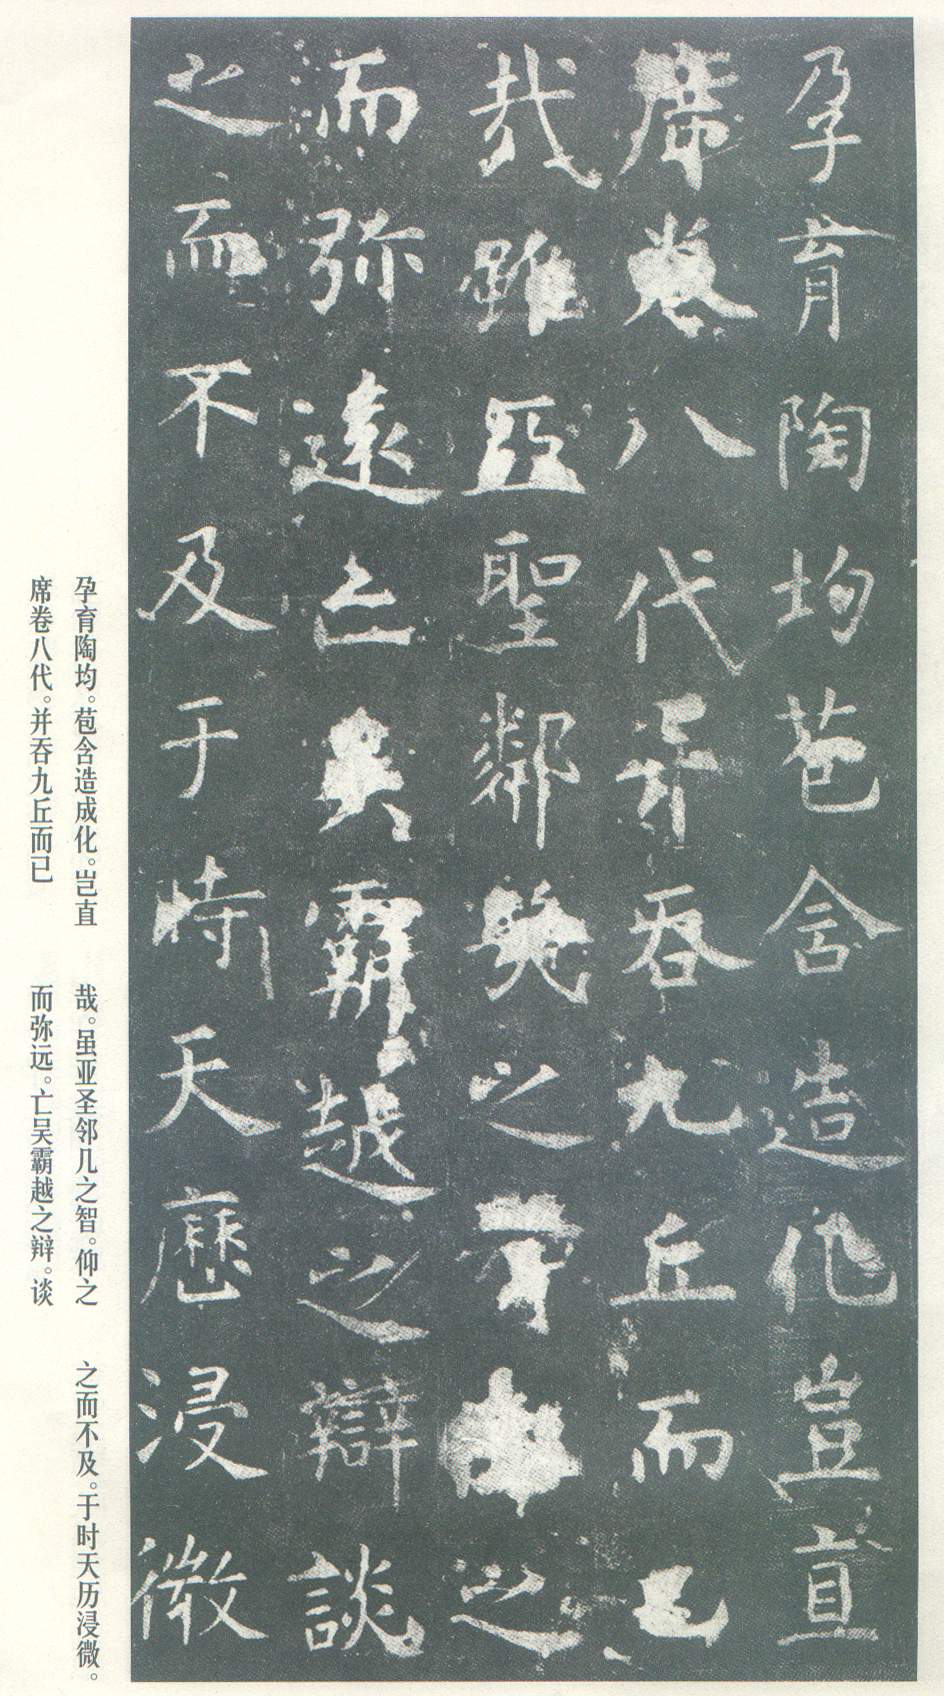 孕育陶均苞含造化豈直
席卷八代并吞九丘而已
哉雖亞聖鄰幾之智仰之
而弥遠亡吳霸越之辯談
之而不及于時天歷浸微
孕育陶均。苞含造成化。岂直
席卷八代。并吞九丘而已
哉。虽亚圣邻几之智。仰之
而弥远。亡吴霸越之辩。谈
之而不及。于时天历浸微。